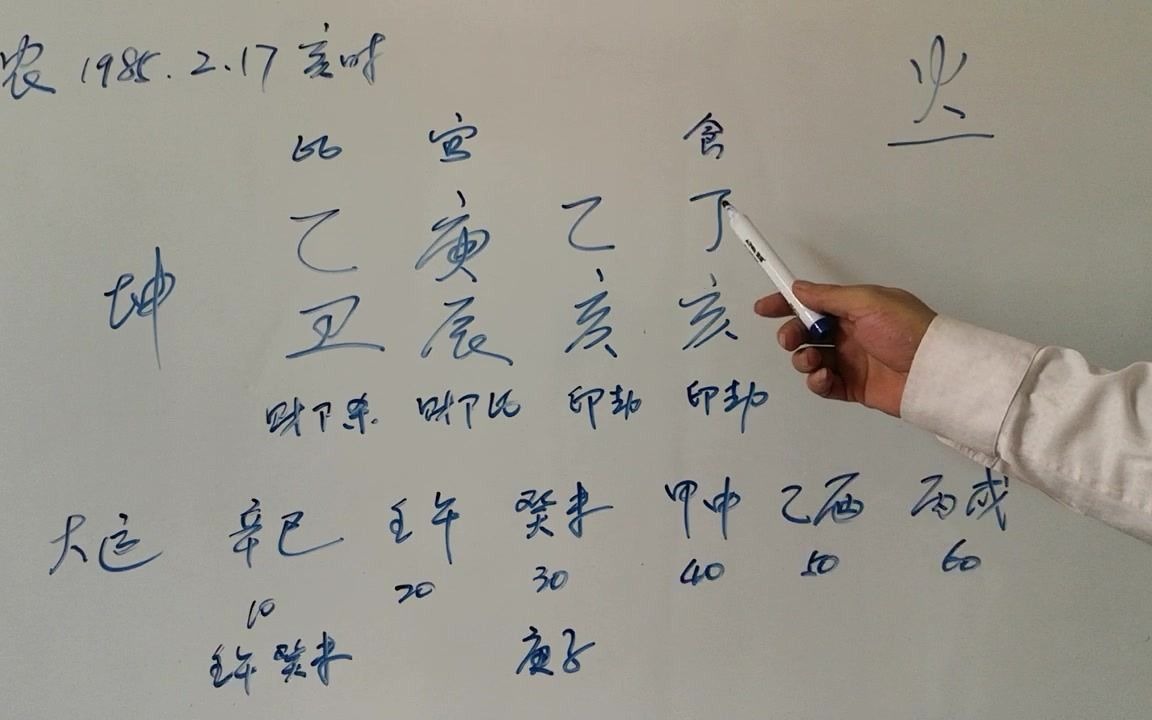 农 1985.2.17 亥时 火
比 官 食
乙 庚 乙 丁
坤
丑 辰 亥 亥
财卩杀 财卩比 印劫 印劫
大运 辛巳 壬午 癸未 甲申 乙酉 丙戌
10 20 30 40 50 60
壬午 癸未 庚子